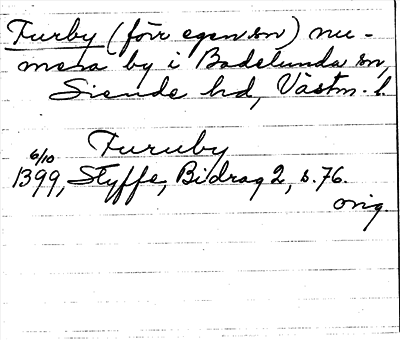 Turby (förr egen sn) nu-
mera by i Badelunda sn,
Siende hd, Västm. l.
Turuby
6/10
1399, Styffe, Bidrag 2, s. 76.
orig.